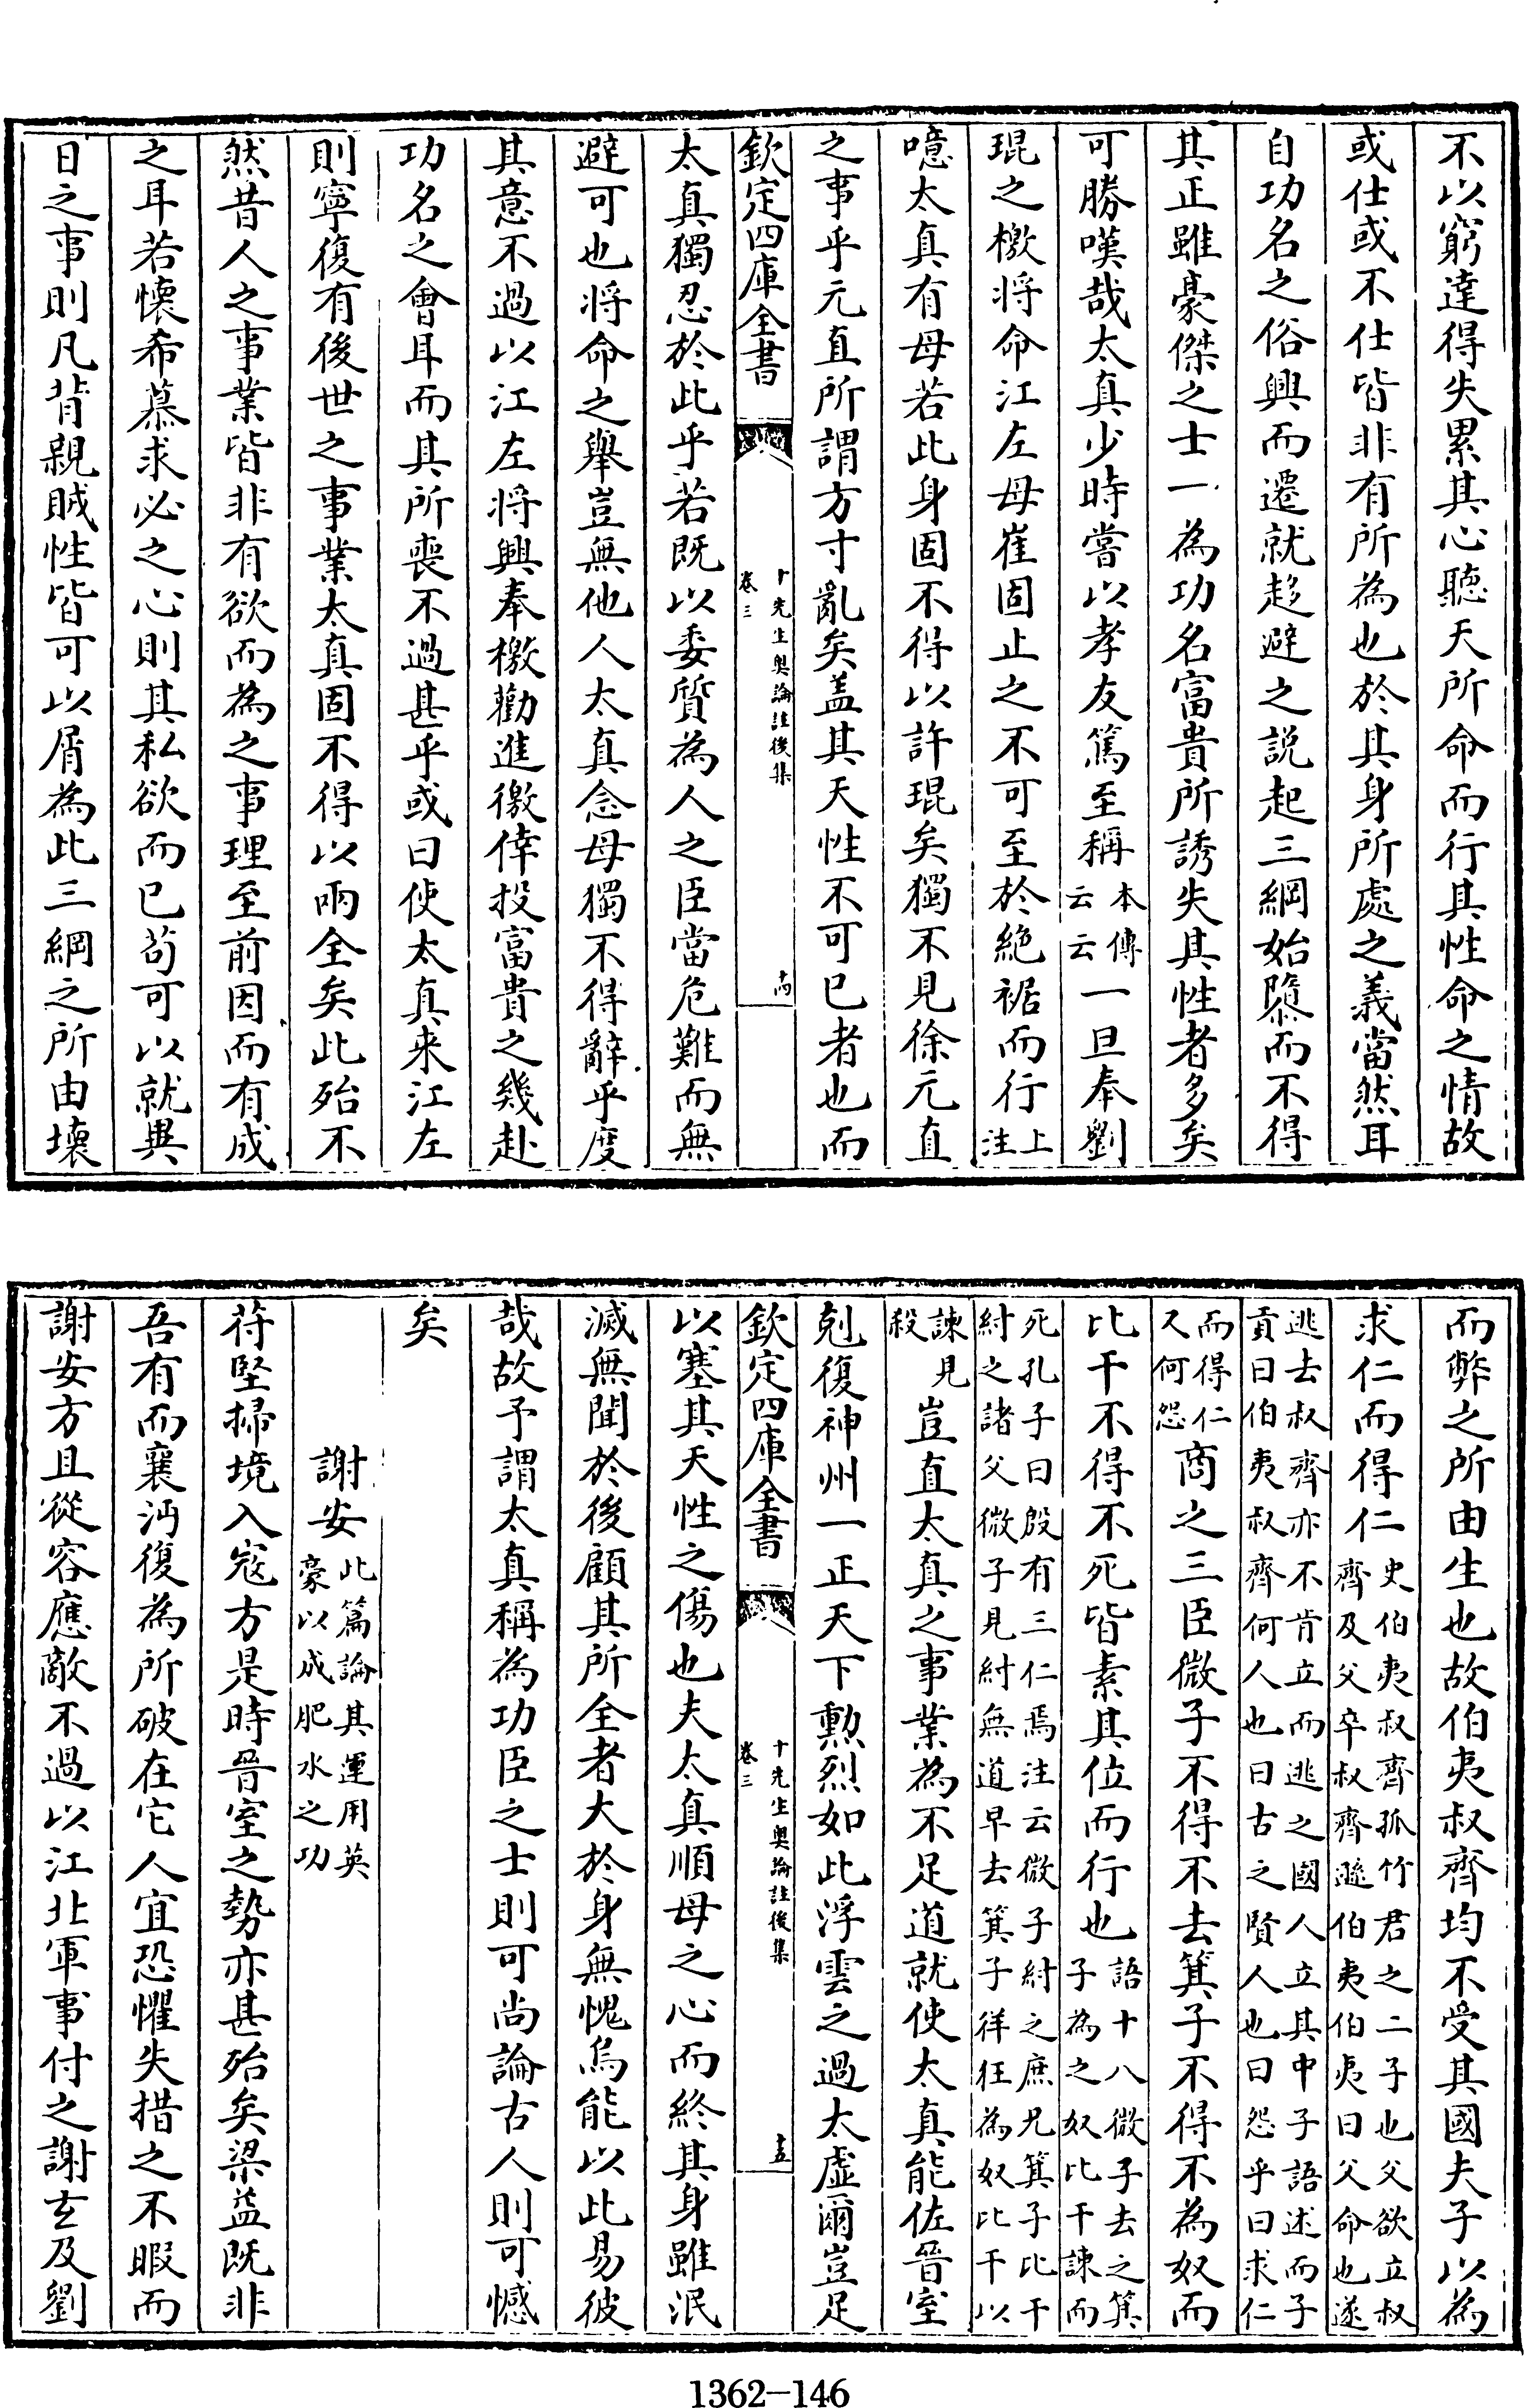 不以窮達得失累其心聽天所命而行其性命之情故
或仕或不仕皆非有所為也於其身所處之義當然耳
自功名之俗興而遷就趍避之説起三綱始隳而不得
其正雖豪傑之士一為功名富貴所誘失其性者多矣
可勝嘆哉太真少時嘗以孝友篤至稱本傳云云一旦奉劉
琨之檄將命江左母崔固止之不可至於絶裾而行上注
噫太真有母若此身固不得以許琨矣獨不見徐元直
之事乎元直所謂方寸亂矣盖其天性不可已者也而
欽定四庫全書
十先生奥論註後集
卷三
十四
太真獨忍於此乎若既以委質為人之臣當危難而無
避可也將命之舉豈無他人太真念母獨不得辭乎度
其意不過以江左將興奉檄勸進徼倖投富貴之幾赴
功名之會耳而其所喪不過甚乎或曰使太真来江左
則寧復有後世之事業太真固不得以兩全矣此殆不
然昔人之事業皆非有欲而為之事理至前因而有成
之耳若懷希慕求必之心則其私欲而已苟可以就異
日之事則凡背親賊性皆可以屑為此三綱之所由壞
而弊之所由生也故伯夷叔齊均不受其國夫子以為
求仁而得仁史伯夷叔齊孤竹君之二子也父欲立叔齊及父卒叔齊遜伯夷伯夷曰父命也遂
逃去叔齊亦不肯立而逃之國人立其中子語述而子貢曰伯夷叔齊何人也曰古之賢人也曰怨乎曰求仁
而得仁又何怨商之三臣微子不得不去箕子不得不為奴而
比干不得不死皆素其位而行也語十八微子去之箕子為之奴比干諫而
死孔子曰殷有三仁焉注云微子紂之庶兄箕子比干紂之諸父微子見紂無道早去箕子徉狂為奴比干以
諫見殺豈直太真之事業為不足道就使太真能佐晉室
剋復神州一正天下勲烈如此浮雲之過太虛爾豈足
欽定四庫全書
十先生奥論註後集
卷三
十五
以塞其天性之傷也夫太真順母之心而終其身雖泯
滅無聞於後顧其所全者大於身無愧烏能以此易彼
哉故予謂太真稱為功臣之士則可尚論古人則可憾
矣
謝安此篇論其運用英豪以成肥水之功
苻堅掃境入宼方是時晉室之勢亦甚殆矣梁益既非
吾有而襄沔復為所破在它人宜恐懼失措之不暇而
謝安方且從容應敵不過以江北軍事付之謝玄及劉
1362-146